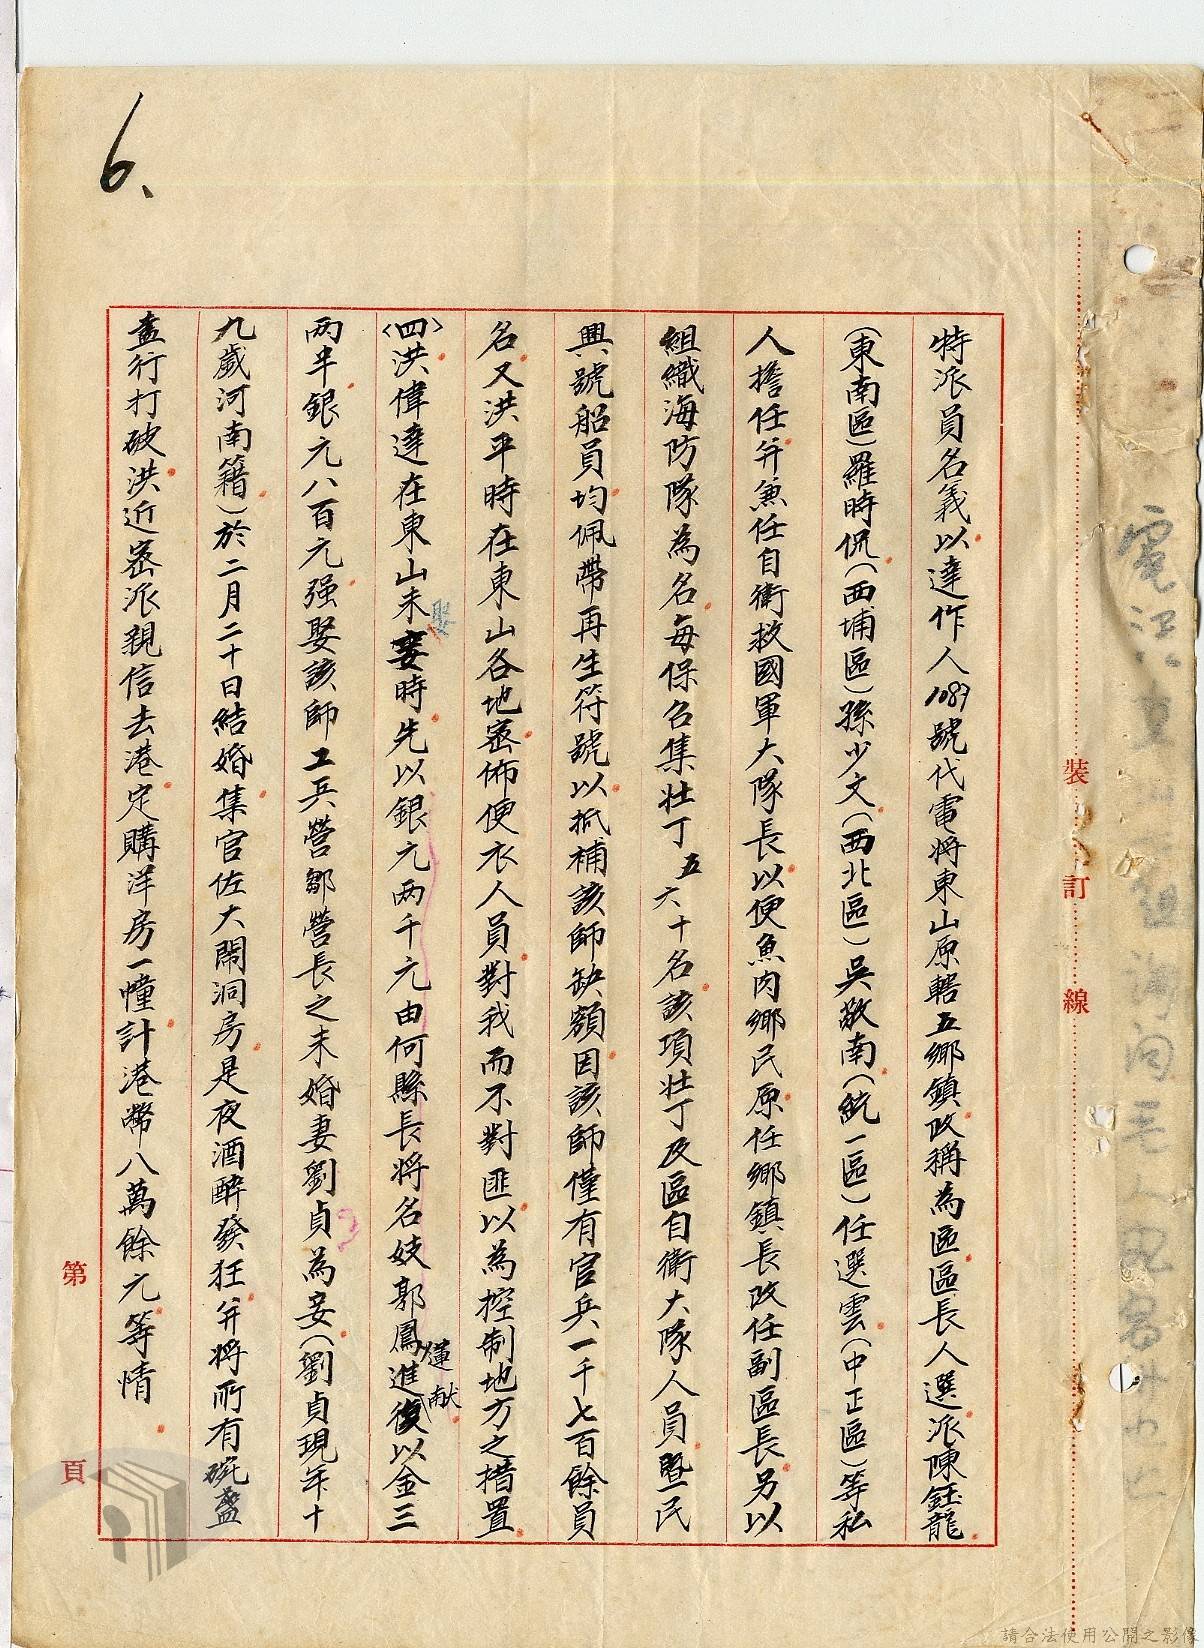 6、
特派員名義以達作人1089號代電將東山原轄五鄉鎮改稱為區區長人選派陳鈺龍
(東南區)羅時侃(西埔區)孫少文(西北區)吳敬南(統一區)任選雲(中正區)等私
人擔任并兼任自衛救國軍大隊長以便魚肉鄉民原任鄉鎮長改任副區長另以
組織海防隊為名每保召集壯丁五六十名該項壯丁及區自衛大隊人員暨民
興號船員均佩帶再生符號以抵補該師缺額因該師僅有官兵一千七百餘員
名又洪平時在東山各地密佈便衣人員對我而不對匪以為控制地方之措置
〈四〉洪偉達在東山未娶妾時先以銀元兩千元由何縣長將名妓郭鳳蓮進献復以金三
兩半銀元八百元强娶該師工兵營鄒營長之未婚妻劉貞為妾(劉貞現年十
九歲河南籍)於二月二十日結婚集官佐大鬧洞房是夜酒醉發狂并將所有碗盞
盡行打破洪近密派親信去港定購洋房一幢計港幣八萬餘元等情
裝訂線
第頁
請合法使用公開之影像